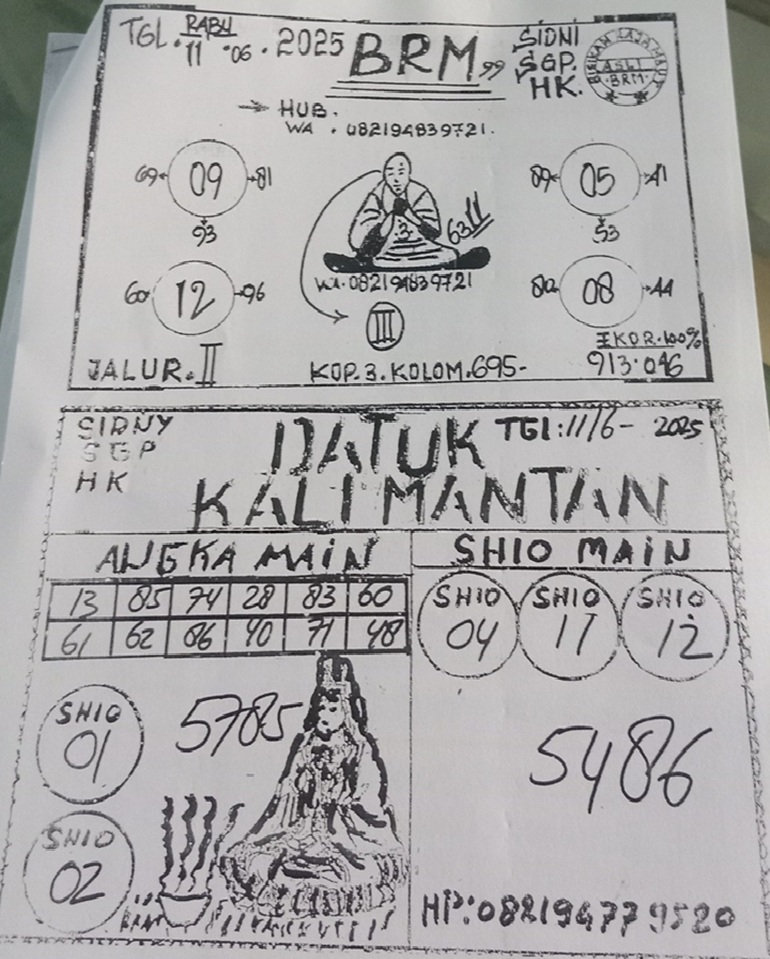 TGL. RABU
11.06.2025
BRM99
SIDNI
SGP.
HK.
ASLI
BRM
HUB.
WA. 082194839721.
69 09 81
93
89 05 41
53
3
6311
WA. 082194839721
60 12 96
80 08 44
III
JALUR. II
KOP. 3. KOLOM. 695-
EKOR. 100%
913.046
SIDNY
SGP
HK
DATUK
TGl: 11/6- 2025
KALIMANTAN
ANGKA MAiN
SHIO MAiN
13 85 74 28 83 60
61 62 86 40 71 48
SHIO
04
SHIO
11
SHIO
12
SHIO
01
5785
5486
SHIO
02
HP:082194779520